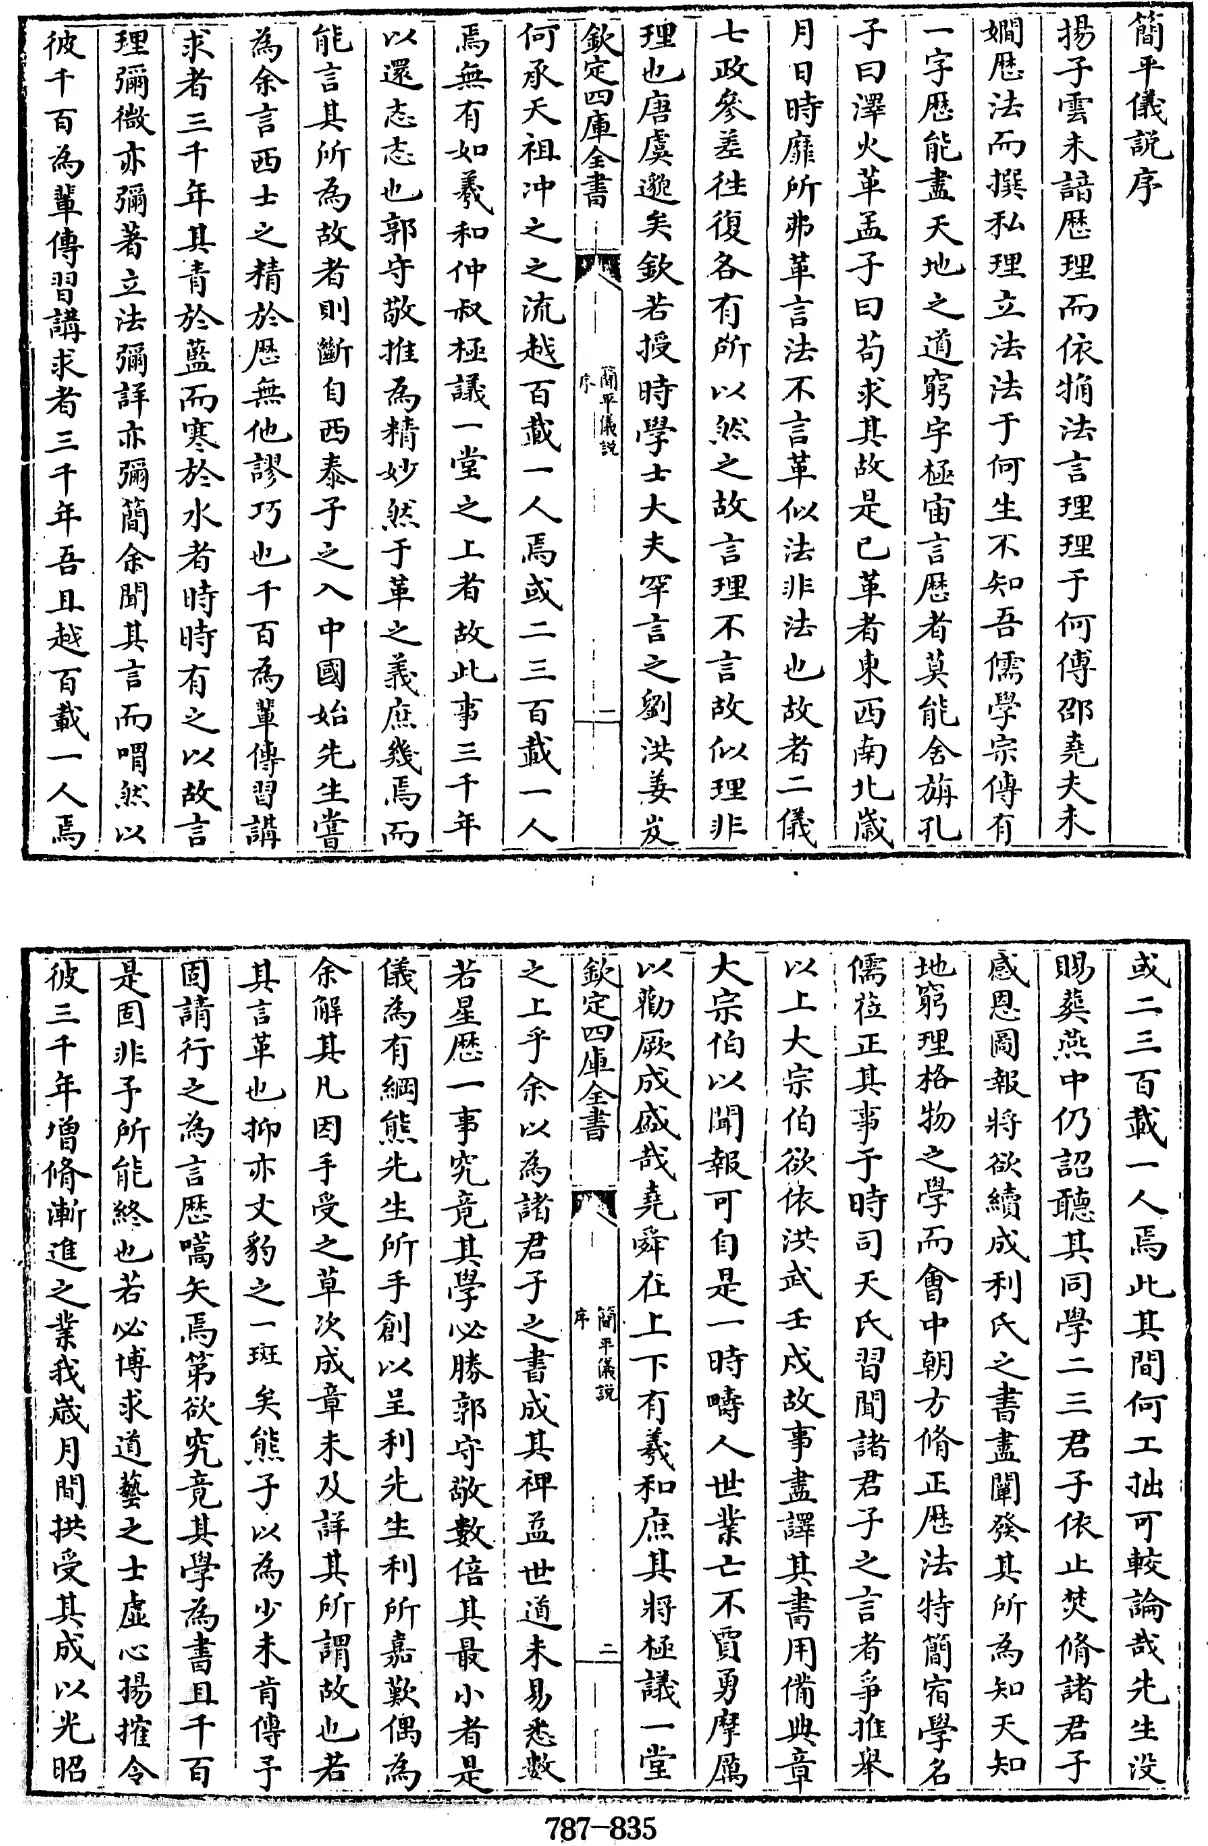 簡平儀說序
揚子雲未諳厯理而依牅法言理理于何傅邵堯夫未
嫺厯法而撰私理立法法于何生不知吾儒學宗傳有
一字厯能盡天地之道窮宇極宙言厯者莫能舍旃孔
子曰澤火革孟子曰茍求其故是已革者東西南北歲
月日時靡所弗革言法不言革似法非法也故者二儀
七政參差往復各有所以然之故言理不言故似理非
理也唐虞邈矣欽若授時學士大夫罕言之劉洪姜岌
欽定四庫全書
簡平儀說
序
一
何承天祖冲之之流越百載一人焉或二三百載一人
焉無有如羲和仲叔極議一堂之上者故此事三千年
以還忞忞也郭守敬推為精妙然于革之義庶幾焉而
能言其所為故者則斷自西泰子之入中國始先生嘗
為余言西士之精於厯無他謬巧也千百為輩傳習講
求者三千年其青於藍而寒於水者時時有之以故言
理彌微亦彌著立法彌詳亦彌簡余聞其言而喟然以
彼千百為輩傳習講求者三千年吾且越百載一人焉
或二三百載一人焉此其間何工拙可較論哉先生没
賜葬燕中仍詔聽其同學二三君子依止焚脩諸君子
感恩圖報將欲續成利氏之書盡闡發其所為知天知
地窮理格物之學而會中朝方脩正厯法特簡宿學名
儒蒞正其事于時司天氏習聞諸君子之言者爭推舉
以上大宗伯欲依洪武壬戌故事盡譯其書用備典章
大宗伯以聞報可自是一時疇人世業亡不賈勇摩厲
以勸厥成盛哉堯舜在上下有羲和庶其將極議一堂
欽定四庫全書
簡平儀說
序
二
之上乎余以為諸君子之書成其裨益世道未易悉數
若星厯一事究竟其學必勝郭守敬數倍其最小者是
儀為有綱熊先生所手創以呈利先生利所嘉歎偶為
余解其凡因手受之草次成章未及詳其所謂故也若
其言革也抑亦文豹之一斑矣熊子以為少未肯傳予
固請行之為言厯嚆矢焉第欲究竟其學為書且千百
是固非予所能終也若必博求道藝之士虛心揚搉令
彼三千年增脩漸進之業我歲月間拱受其成以光昭
787-835